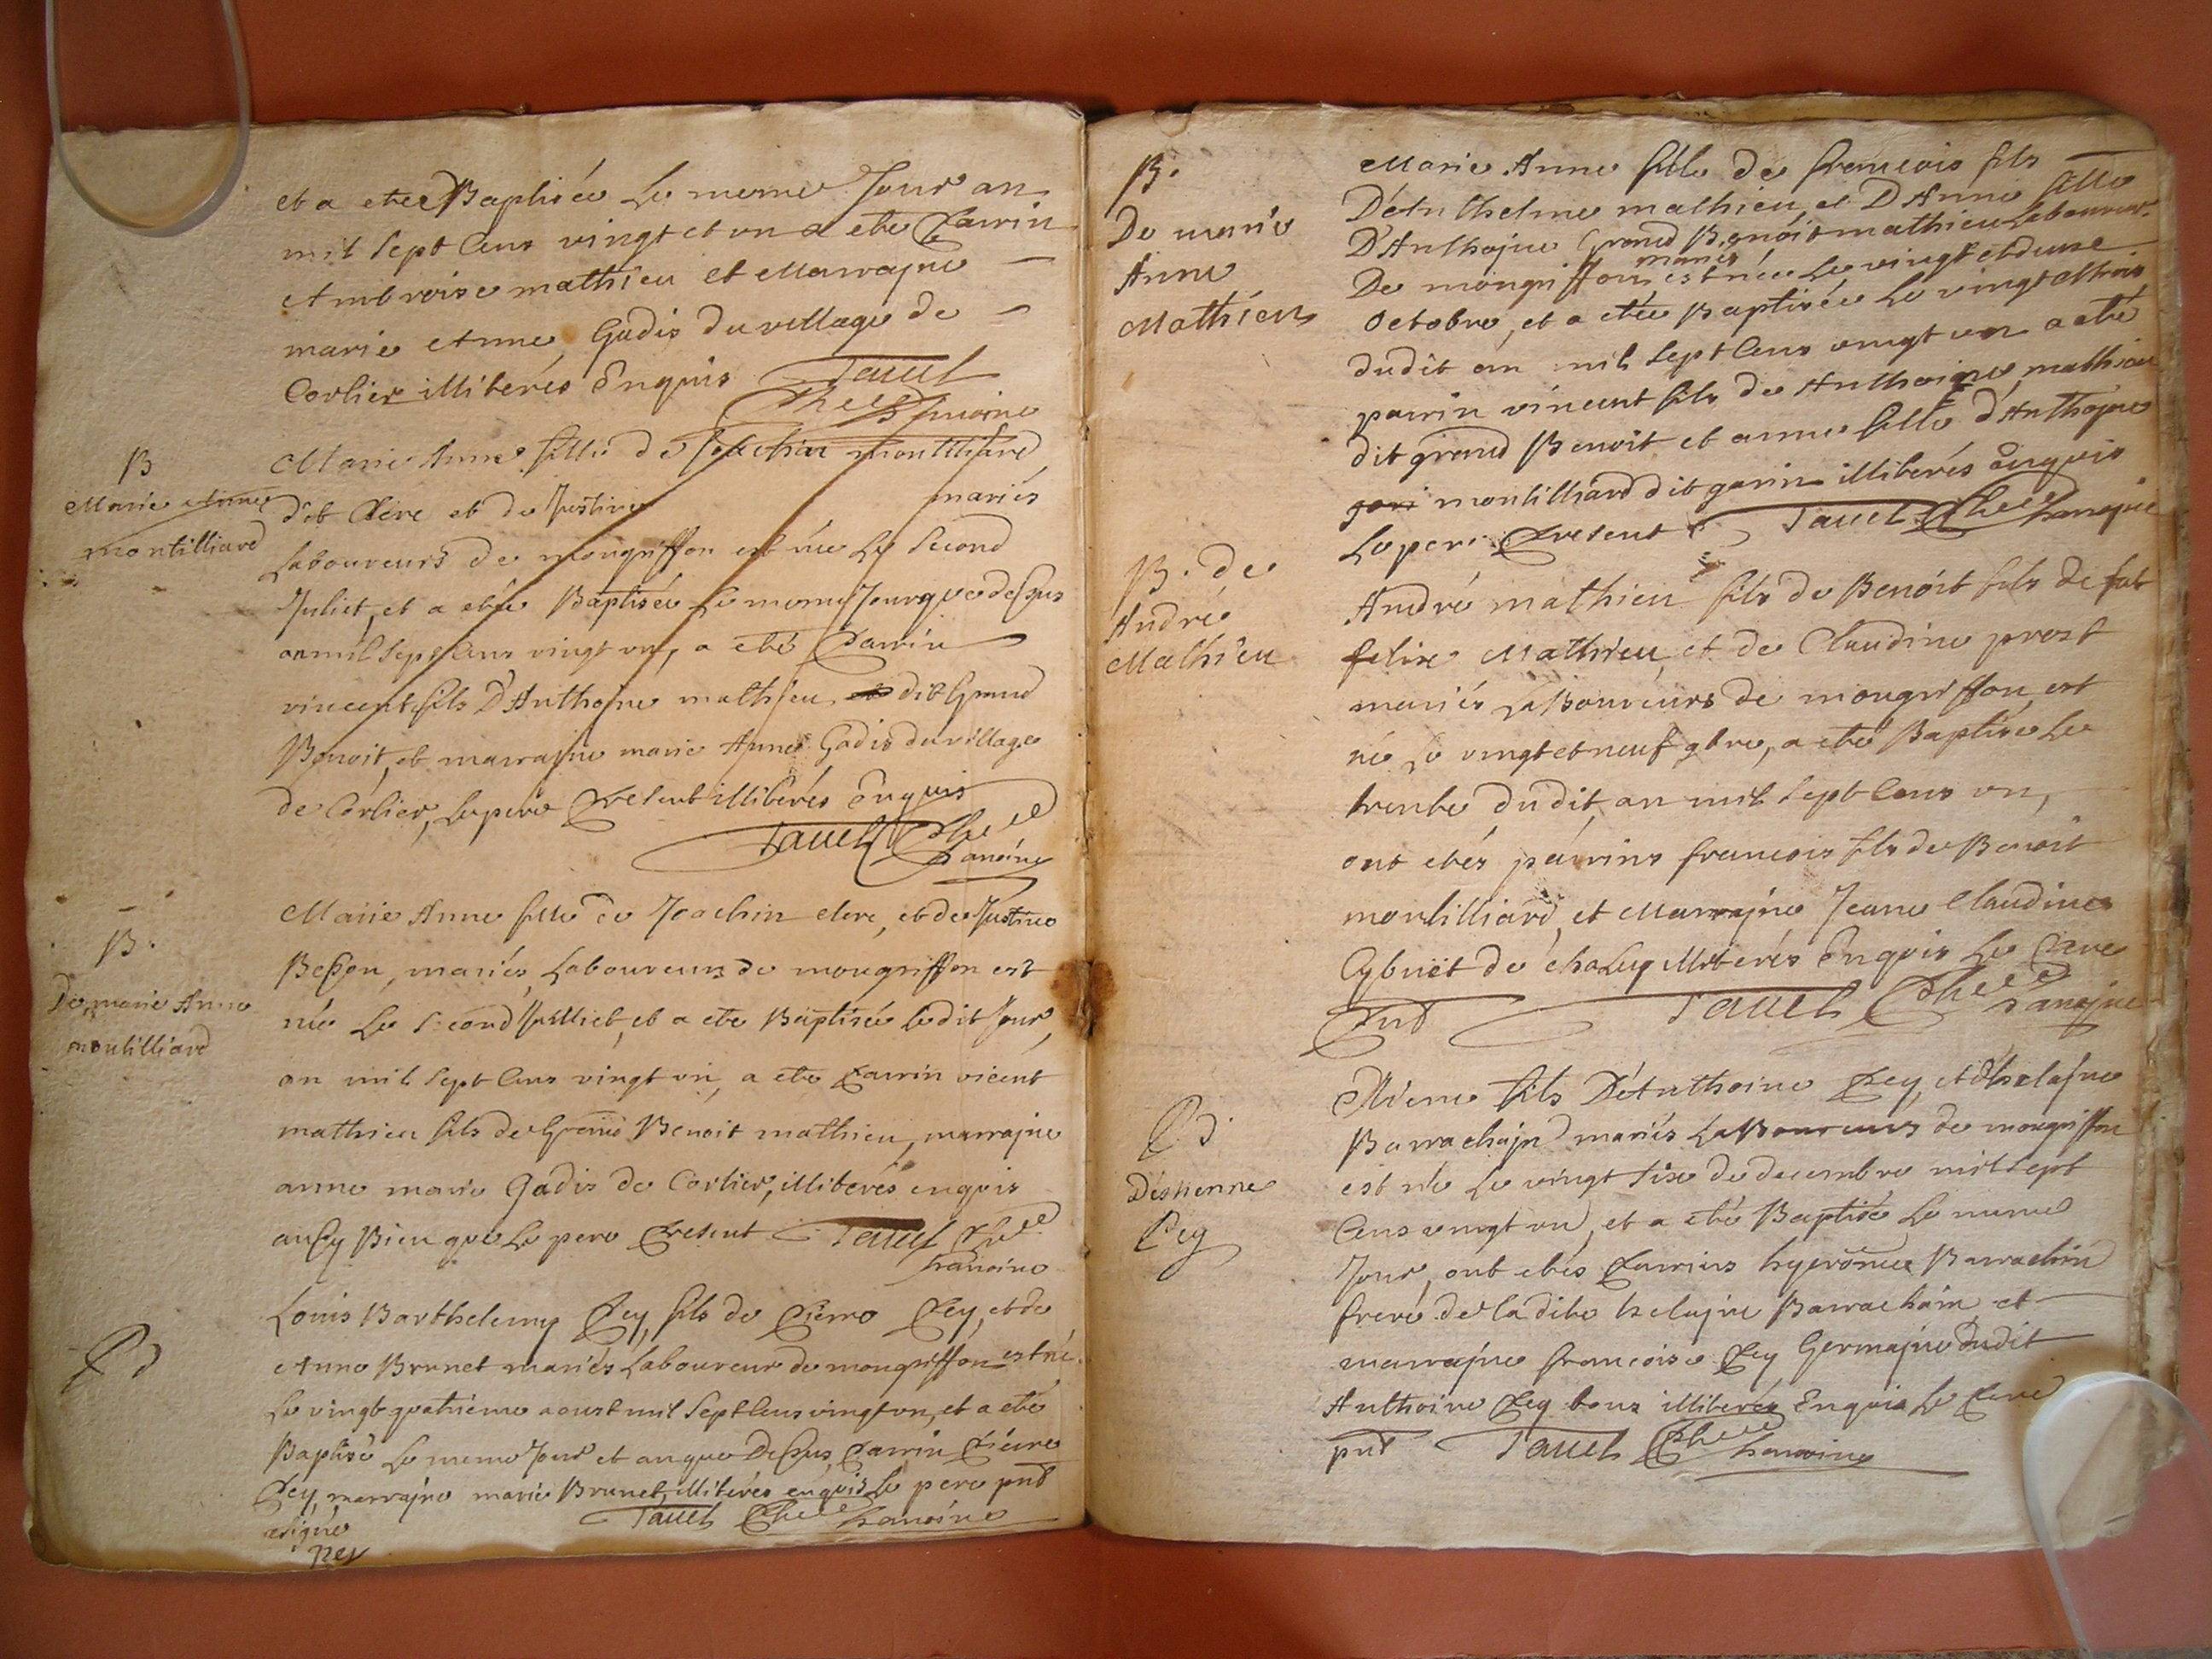 et a etee Baptisée Le meme Jour an
mil Sept Cens vingt et un a ete Parrin
Ambroise mathieu et Marrajne
marie Anne Gadis du village de
Corlier illiterés Enquis Tavel
Chanoine
B
Marie Anne
montilliard
Marie Anne fille de Joachin montilliard
dit Clerc et de Justine mariés
Laboureurs de mongriffon est née Le Second
Juliet, et a etée Baptisée Le meme Jour que deßus
an mil Sept Cens vingt un, a eté Parrin
vincent fils D'Anthojne mathieu dit Grand
Benoit, et marrajne marie Anne Gadis du village
de Corlier, Le pere Present illiterés Enquis
Tavel
Chanoine
B.
De marie Anne
montilliard
Marie Anne fille de Joachin clerc, et de Justine
Beßon, mariés, Laboureurs de mongriffon est
née Le Second Juilliet, et a ete Baptisée ledit Jour,
an mil Sept Cens vingt un, a ete Parrin vicent
mathieu fils de Grand Benoit mathieu, marrajne
anne marie Gadis de Corlier, illiterés enquis
außy Bien que Le pere Present Tavel
chanoine
B
Louis Barthelemy Pey, fils de Pierre Pey, et de
Anne Brunet mariés Laboureur de mongriffon est né
Le vingt quatrieme aoust mil Sept Cens vingt un, et a eté
Baptisé Le meme Jour et an que Deßus, Parrin Pierre
Pey, marrajne marie Brunet, illiterés enquis Le pere pnt
a signé Tavel chanoine
Pey
B.
De marie
Anne
Mathieu
Marie Anne fille de francois fils
D'Anthelme mathieu et D'Anne fille
D'Anthojne Grand Benoit mathieu Laboureur
mariés
De mongriffon est née Le vingt et dune
Octobre, et a etée Baptisée Le vingt et trois
dudit an mil Sept Cens vingt un a eté
parrin vincent fils de Anthoine mathieu
dit grand Benoit et anne fille d'Anthojne
montilliard dit garin illiterés enquis
Le pere Present Tavel chanojne
B. de
André
Mathieu
André mathieu fils de Benoit fils de fut
felix Mathieu et de Claudine prost
mariés LaBoureurs de mongriffon est
né Le vingt et neuf 9bre, a eté Baptisé Le
trente dudit, an mil Sept Cens un,
ont etés parrins francois fils de Benoit
montilliard, et Marrajne Jeane Claudine
de illiterés Enquis Le Pere
Pnt Tavel chanojne
B.
Destienne
Pey
Etienne fils D'Anthoine Pey, et d'helajne
Barrachajn mariés LaBoureurs de mongriffon
est né Le vingt Sixe de decembre mil Sept
Cens vingt un, et a eté Baptisé Le meme
Jour, ont etés Parrins hyerôme Barrachin
frere de la dite helajne Barrachain et
marrajne francoise Pey Germajne dudit
Anthoine Pey tous illiterés Enquis Le Pere
pnt Tavel chanoine